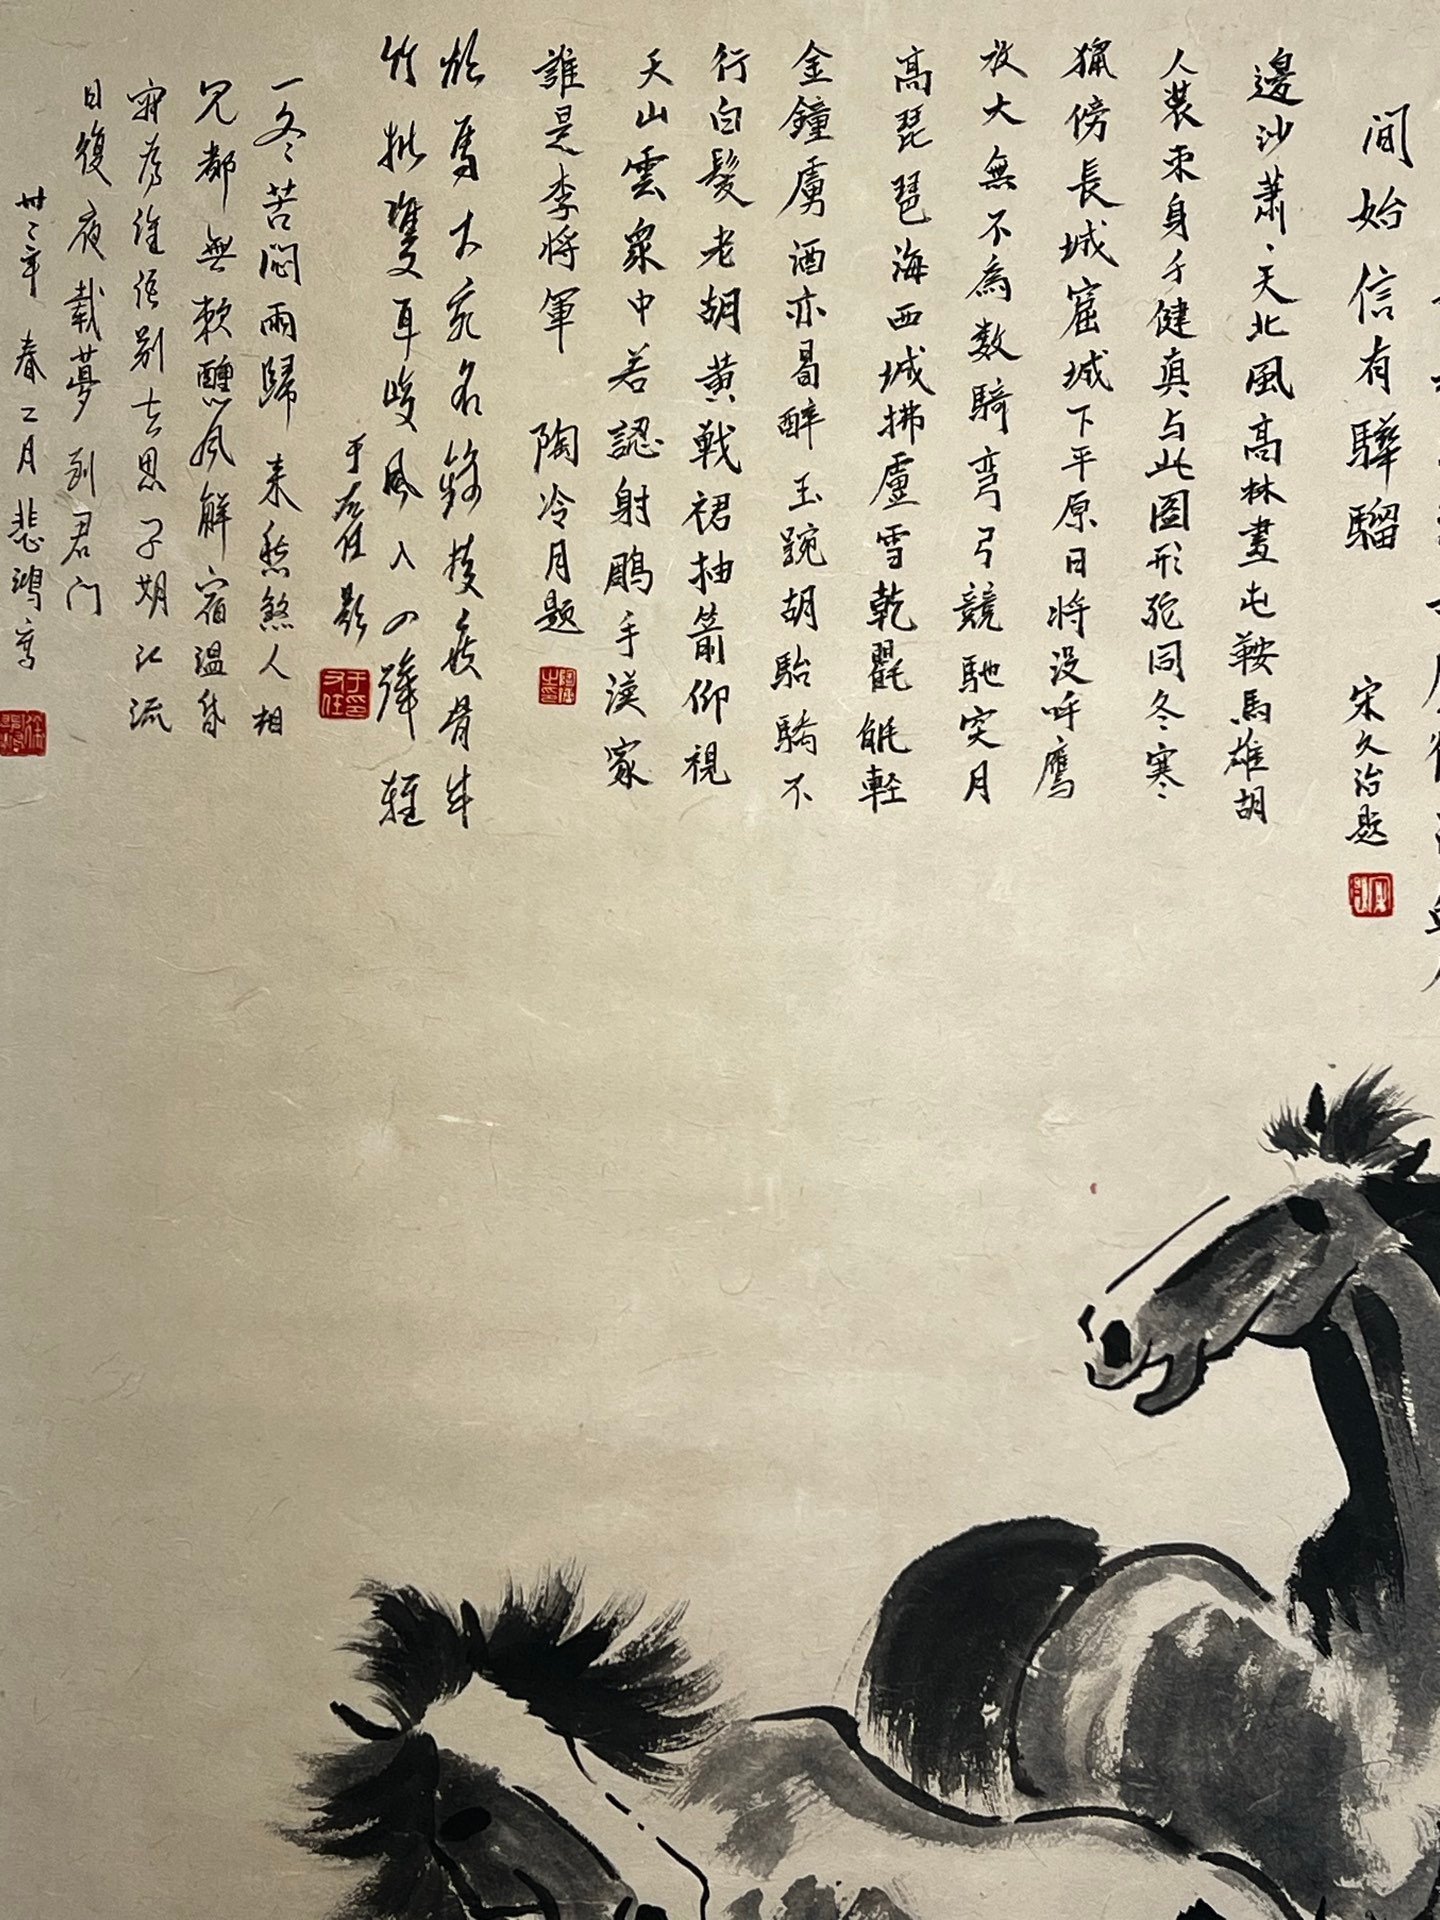 間始信有驊騮
宋久治题
邊沙蕭〻天北風高林晝屯鞍馬雄胡
人装束身手健真与此图形貌同冬寒〻
獵傍長城窟城下平原日将没呼鷹
放犬無不為数騎弯弓競馳突月
高琵琶海西城拂廬雪乾氍毹軽
金鐘虜酒亦易醉玉踠胡駘驕不
行白髮老胡黄戟裙抽箭仰視
天山雲衆中若認射鵰手漢家
誰是李将軍 陶冷月题
胡馬大宛名鋒稜瘦骨成
竹批雙耳峻風入四蹄軽
于右任题
一冬〻苦悶雨歸来愁煞人相
見都無賴醺風解宿温
君
日復夜載夢到君门
卅二年春二月悲鴻寫